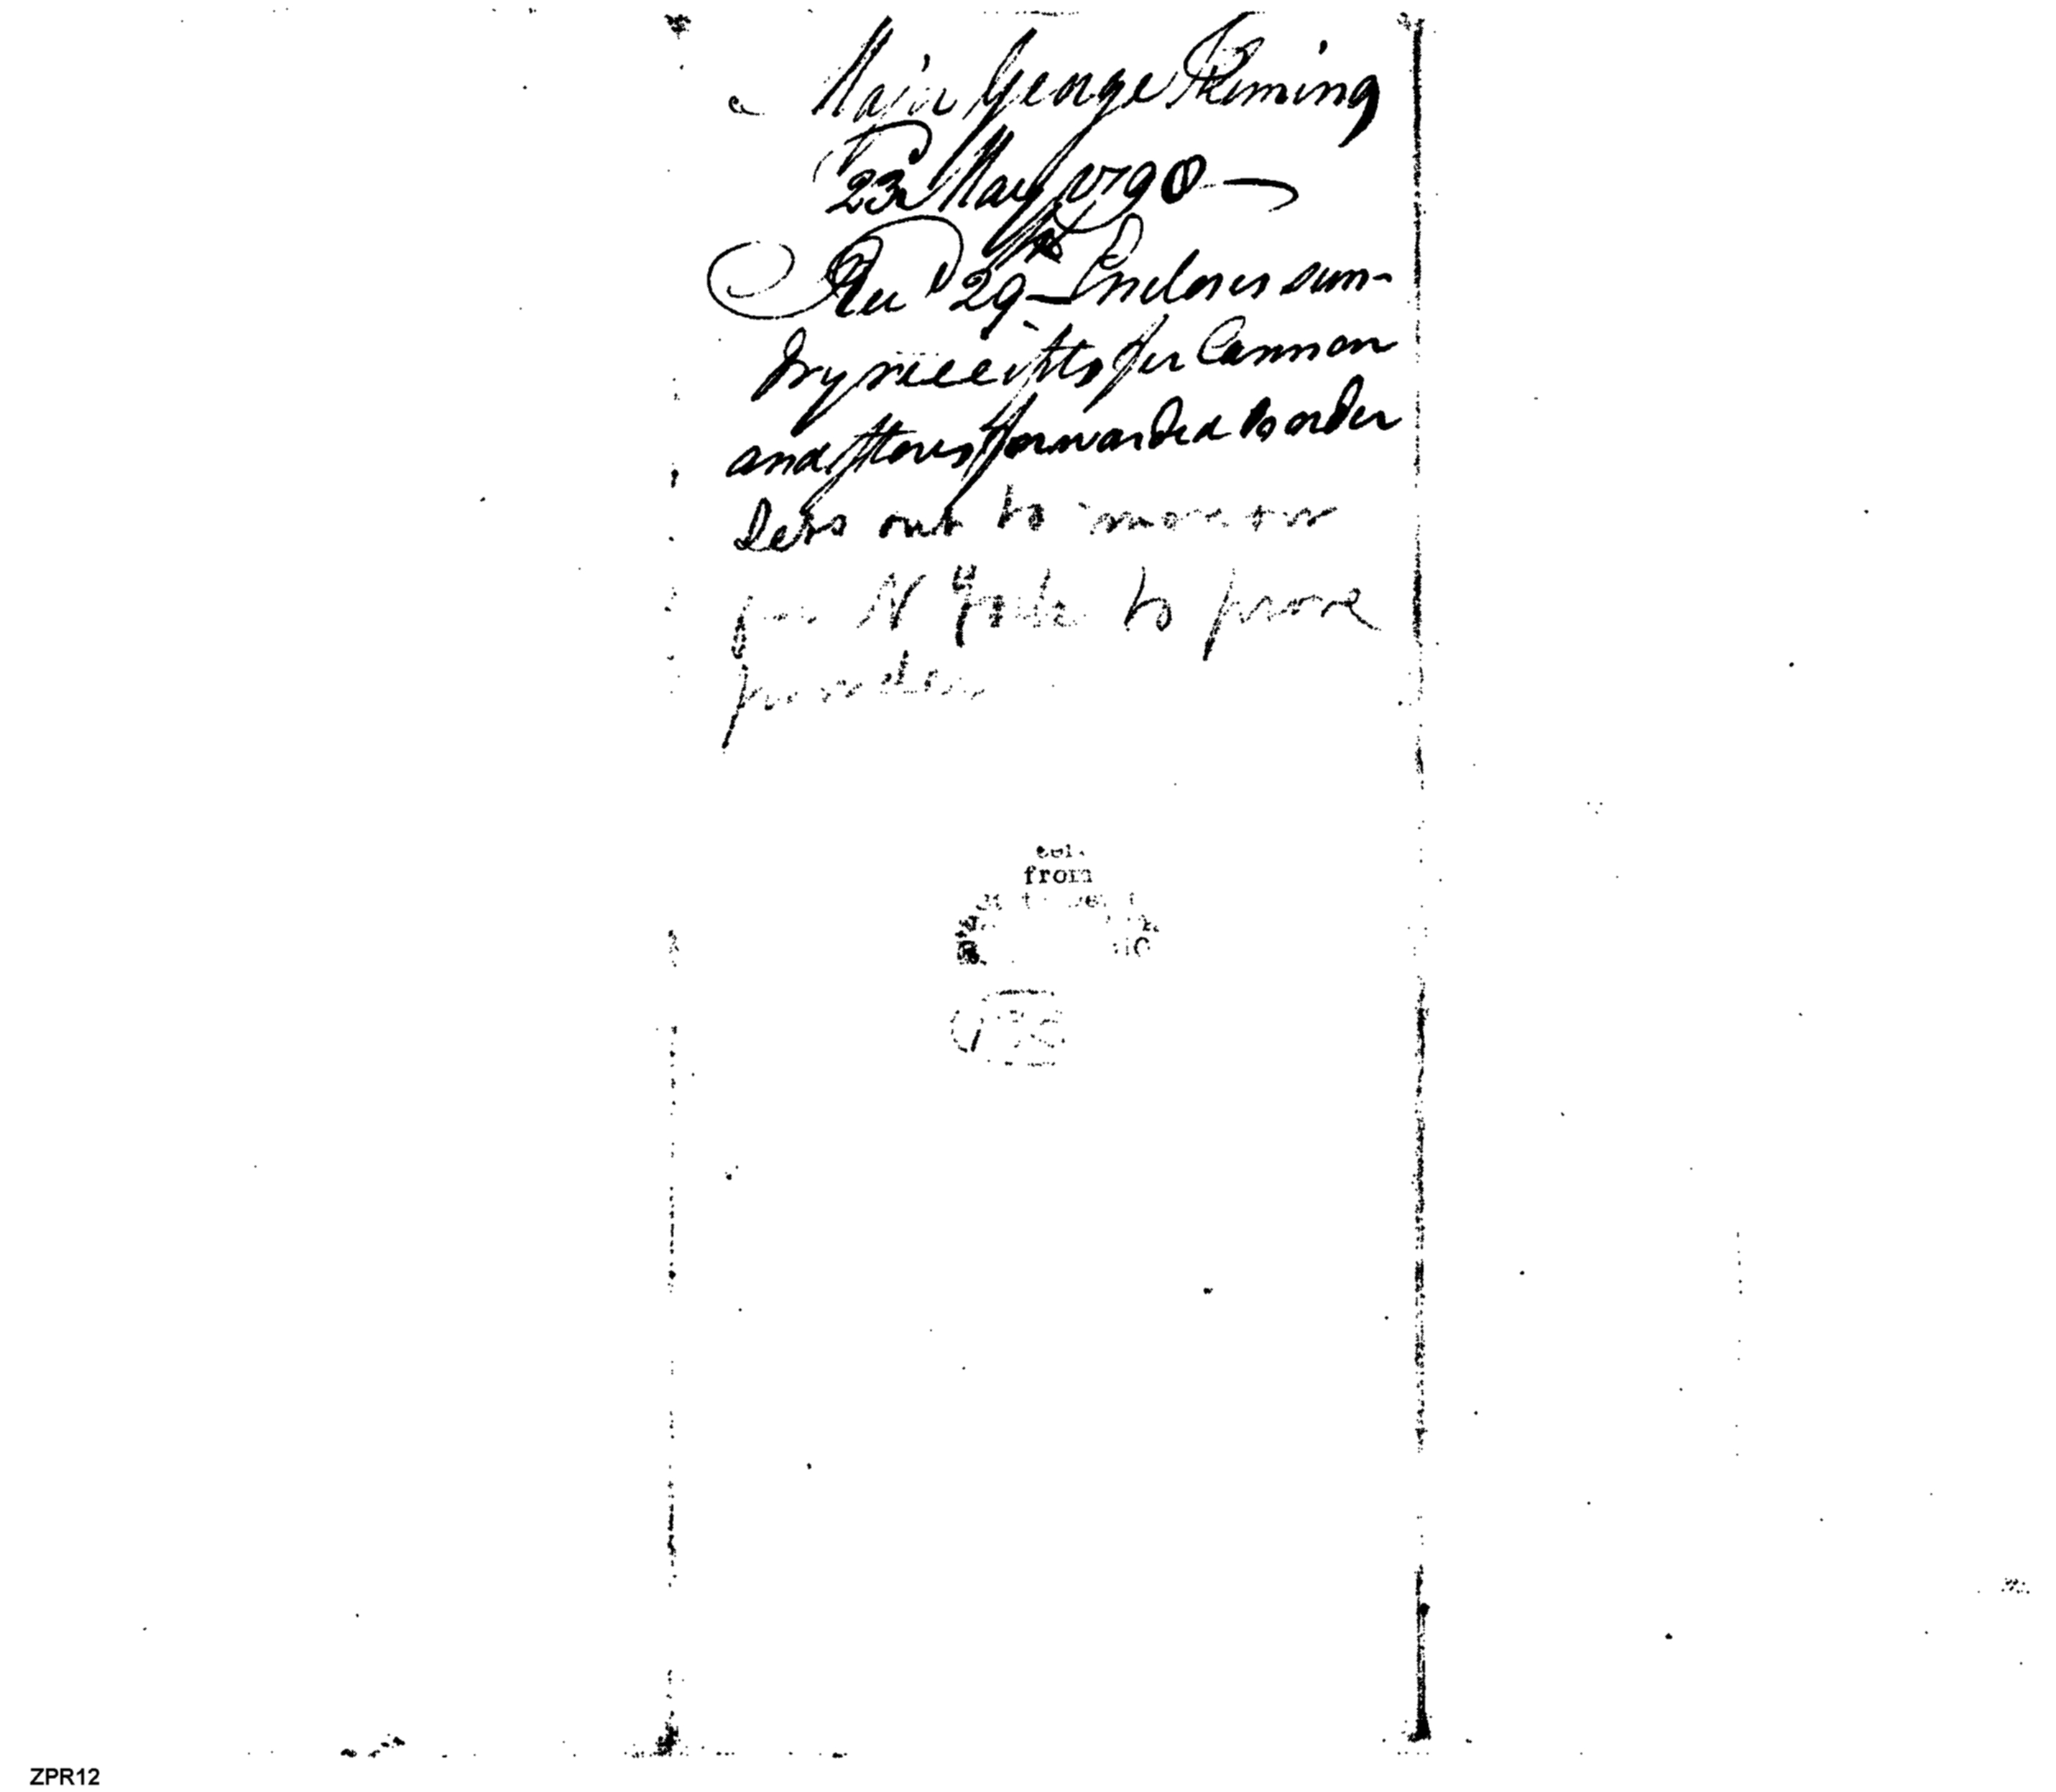 Majr George Fleming
23d May 1790 —
Recd 29th Incloses sun-
dry receipts for Cannon
and Stores forwarded to order
Sets out to morrow
for N York to prove
powder
from
ZPR12